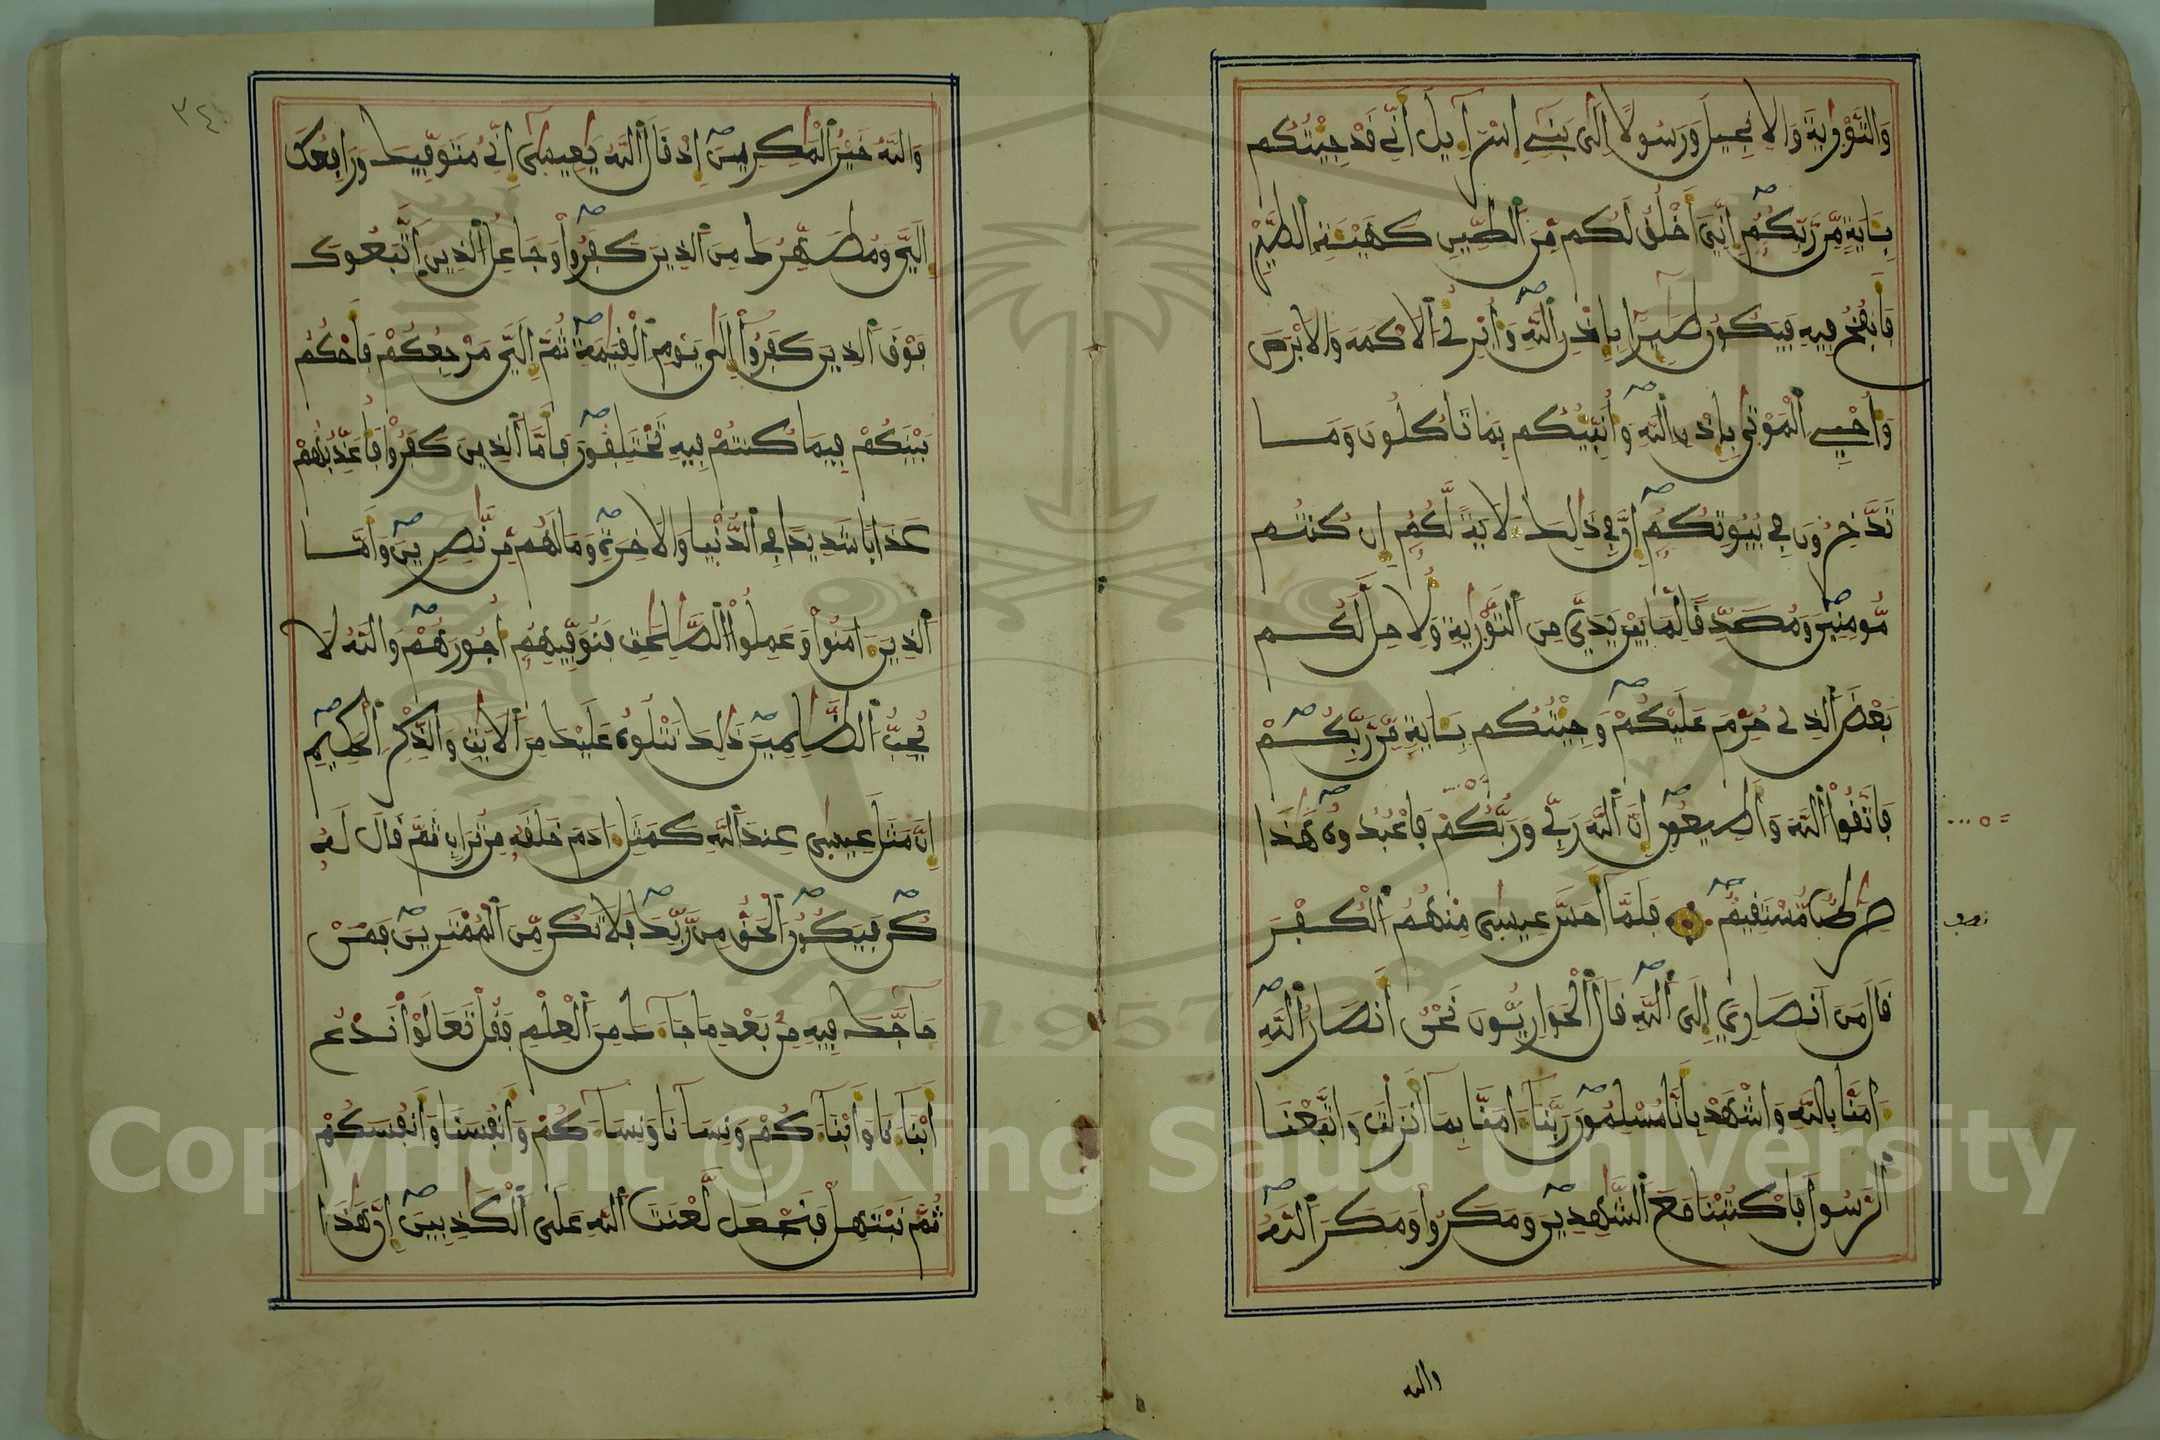 وَالتَّوْرِيٰةَ وَالِانجِيلَ وَرَسُولًا اِلَىٰ بَنِے إِسْرَآءِيلَ أَنِّے قَدْ جِيْتُكُم
بِـَٔايَةٍ مِّن رَّبِّكُمُۥٓ إِنِّيَ أَخْلُقُ لَكُم مِّنَ ٱلطِّينِ كَهَيْـَٔةِ ٱلطَّيْرِ
فَأَنفُخُ فِيهِ فَيَكُونُ طَٰٓئِرًا بِإِذْنِ ٱللَّهِ وَأُبْرِئُ ٱلَاكْمَهَ وَالَابْرَصَ
وَأُحْيِے ٱلْمَوْتَىٰ بِإِذْنِ ٱللَّهِ وَأُنَبِّئُكُم بِمَا تَاكُلُونَ وَمَا
تَدَّخِرُونَ فِي بُيُوتِكُمُۥٓ إِنَّ فِي ذَٰلِكَ لَأٓيَةً لَّكُمُۥٓ إِن كُنتُم
مُّومِنِينَ وَمُصَدِّقًا لِّمَا بَيْنَ يَدَيَّ مِنَ ٱلتَّوْرِيٰةِ وَلِأُحِلَّ لَكُم
بَعْضَ ٱلذِى حُرِّمَ عَلَيْكُمْ وَجِيْتُكُم بِـَٔايَةٍ مِّن رَّبِّكُمْ
فَاتَّقُوا۟ ٱللَّهَ وَأَطِيعُونِ إِنَّ ٱللَّهَ رَبِّى وَرَبُّكُمْ فَاعْبُدُوهُ هَٰذَا
صِرَٰطٌ مُّسْتَقِيمٌ فَلَمَّآ أَحَسَّ عِيسَىٰ مِنْهُمُ ٱلْكُفْرَ
قَالَ مَنَ اَنصَارِىَ إِلَى ٱللَّهِ قَالَ ٱلْحَوَارِيُّونَ نَحْنُ أَنصَارُ ٱللَّهِ
ءَامَنَّا بِاللَّهِ وَاشْهَدْ بِأَنَّا مُسْلِمُونَ رَبَّنَآ ءَامَنَّا بِمَآ أَنزَلْتَ وَاتَّبَعْنَا
ٱلرَّسُولَ فَاكْتُبْنَا مَعَ ٱلشَّٰهِدِينَ وَمَكَرُوا۟ وَمَكَرَ ٱللَّهُ
نصف
والله
٣٤
وَاللَّهُ خَيْرُ ٱلْمَٰكِرِينَ إِذْ قَالَ ٱللَّهُ يَٰعِيسَىٰٓ إِنِّى مُتَوَفِّيكَ وَرَافِعُكَ
إِلَيَّ وَمُطَهِّرُكَ مِنَ ٱلذِينَ كَفَرُوا۟ وَجَاعِلُ ٱلذِينَ ٱتَّبَعُوكَ
فَوْقَ ٱلذِينَ كَفَرُوٓا۟ إِلَىٰ يَوْمِ ٱلْقِيَٰمَةِ ثُمَّ إِلَيَّ مَرْجِعُكُمْ فَأَحْكُمُ
بَيْنَكُمْ فِيمَا كُنتُمْ فِيهِ تَخْتَلِفُونَ فَأَمَّا ٱلذِينَ كَفَرُوا۟ فَأُعَذِّبُهُمْ
عَذَابًا شَدِيدًا فِي ٱلدُّنْيَا وَالَاخِرَةِ وَمَا لَهُم مِّن نَّٰصِرِينَ وَأَمَّا
ٱلذِينَ ءَامَنُوا۟ وَعَمِلُوا۟ ٱلصَّٰلِحَٰتِ فَنُوَفِّيهِمُۥٓ أُجُورَهُمْ وَاللَّهُ لَا
يُحِبُّ ٱلظَّٰلِمِينَ ذَٰلِكَ نَتْلُوهُ عَلَيْكَ مِنَ ٱلَايَٰتِ وَالذِّكْرِ ٱلْحَكِيمِ
إِنَّ مَثَلَ عِيسَىٰ عِندَ ٱللَّهِ كَمَثَلِ ءَادَمَ خَلَقَهُۥ مِن تُرَابٍ ثُمَّ قَالَ لَهُۥ
كُن فَيَكُونُ ٱلْحَقُّ مِن رَّبِّكَ فَلَا تَكُن مِّنَ ٱلْمُمْتَرِينَ فَمَنْ
حَآجَّكَ فِيهِ مِنۢ بَعْدِ مَا جَآءَكَ مِنَ ٱلْعِلْمِ فَقُلْ تَعَالَوْا۟ نَدْعُ
أَبْنَآءَنَا وَأَبْنَآءَكُمْ وَنِسَآءَنَا وَنِسَآءَكُمْ وَأَنفُسَنَا وَأَنفُسَكُمْ
ثُمَّ نَبْتَهِلْ فَنَجْعَل لَّعْنَتَ ٱللَّهِ عَلَى ٱلْكَٰذِبِينَ إِنَّ هَٰذَا
Copyright © King Saud University
1957